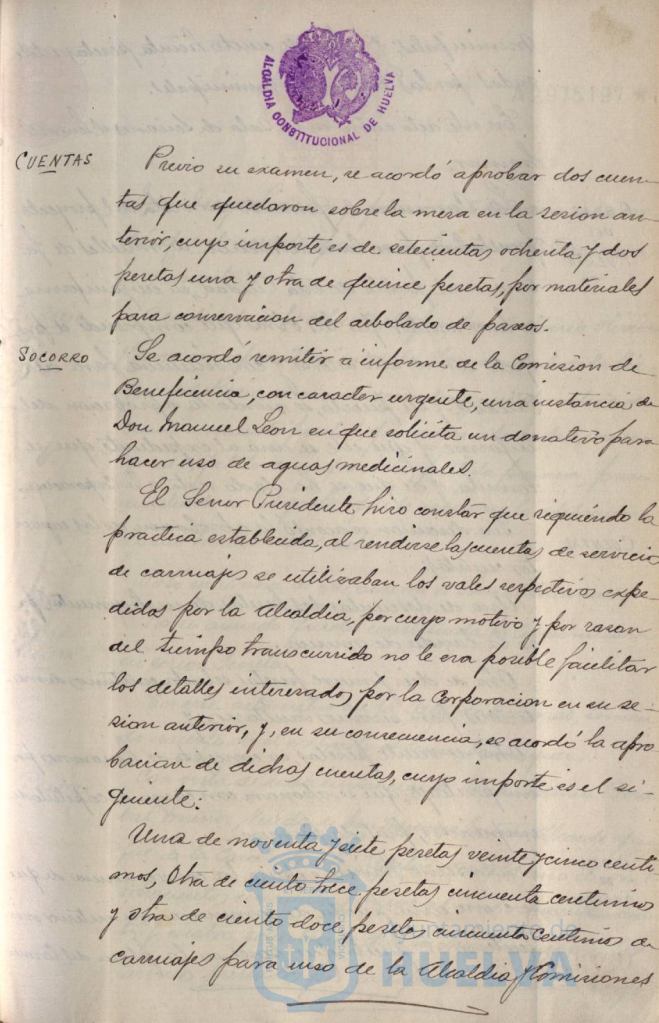 ALCALDIA CONSTITUCIONAL DE HUELVA
CUENTAS
Previo su examen, se acordó aprobar dos cuen-
tas que quedaron sobre la mesa en la sesion an-
terior, cuyo importe es de setecientas ochenta y dos
pesetas una y otra de quince pesetas, por materiales
para conservacion del arbolado de paseos.
SOCORRO
Se acordó remitir a informe de la Comision de
Beneficencia, con caracter urgente, una instancia de
Don Manuel Leon en que solicita un donativo para
hacer uso de aguas medicinales.
El Señor Presidente hizo constar que siguiendo la
practica establecida, al rendirse las cuentas de servicio
de carruajes se utilizaban los vales respectivos expe-
didos por la Alcaldia, por cuyo motivo y por razon
del tiempo transcurrido no le era posible facilitar
los detalles interesados por la Corporacion en su se-
sion anterior, y, en su consecuencia, se acordó la apro
bacion de dichas cuentas, cuyo importe es el si-
guiente:
Una de noventa y siete pesetas veinte y cinco centi
mos, otra de ciento trece pesetas cincuenta centimos
y otra de ciento doce pesetas cincuenta centimos de
carruajes para uso de la Alcaldia y Comisiones
Ayuntamiento de
HUELVA